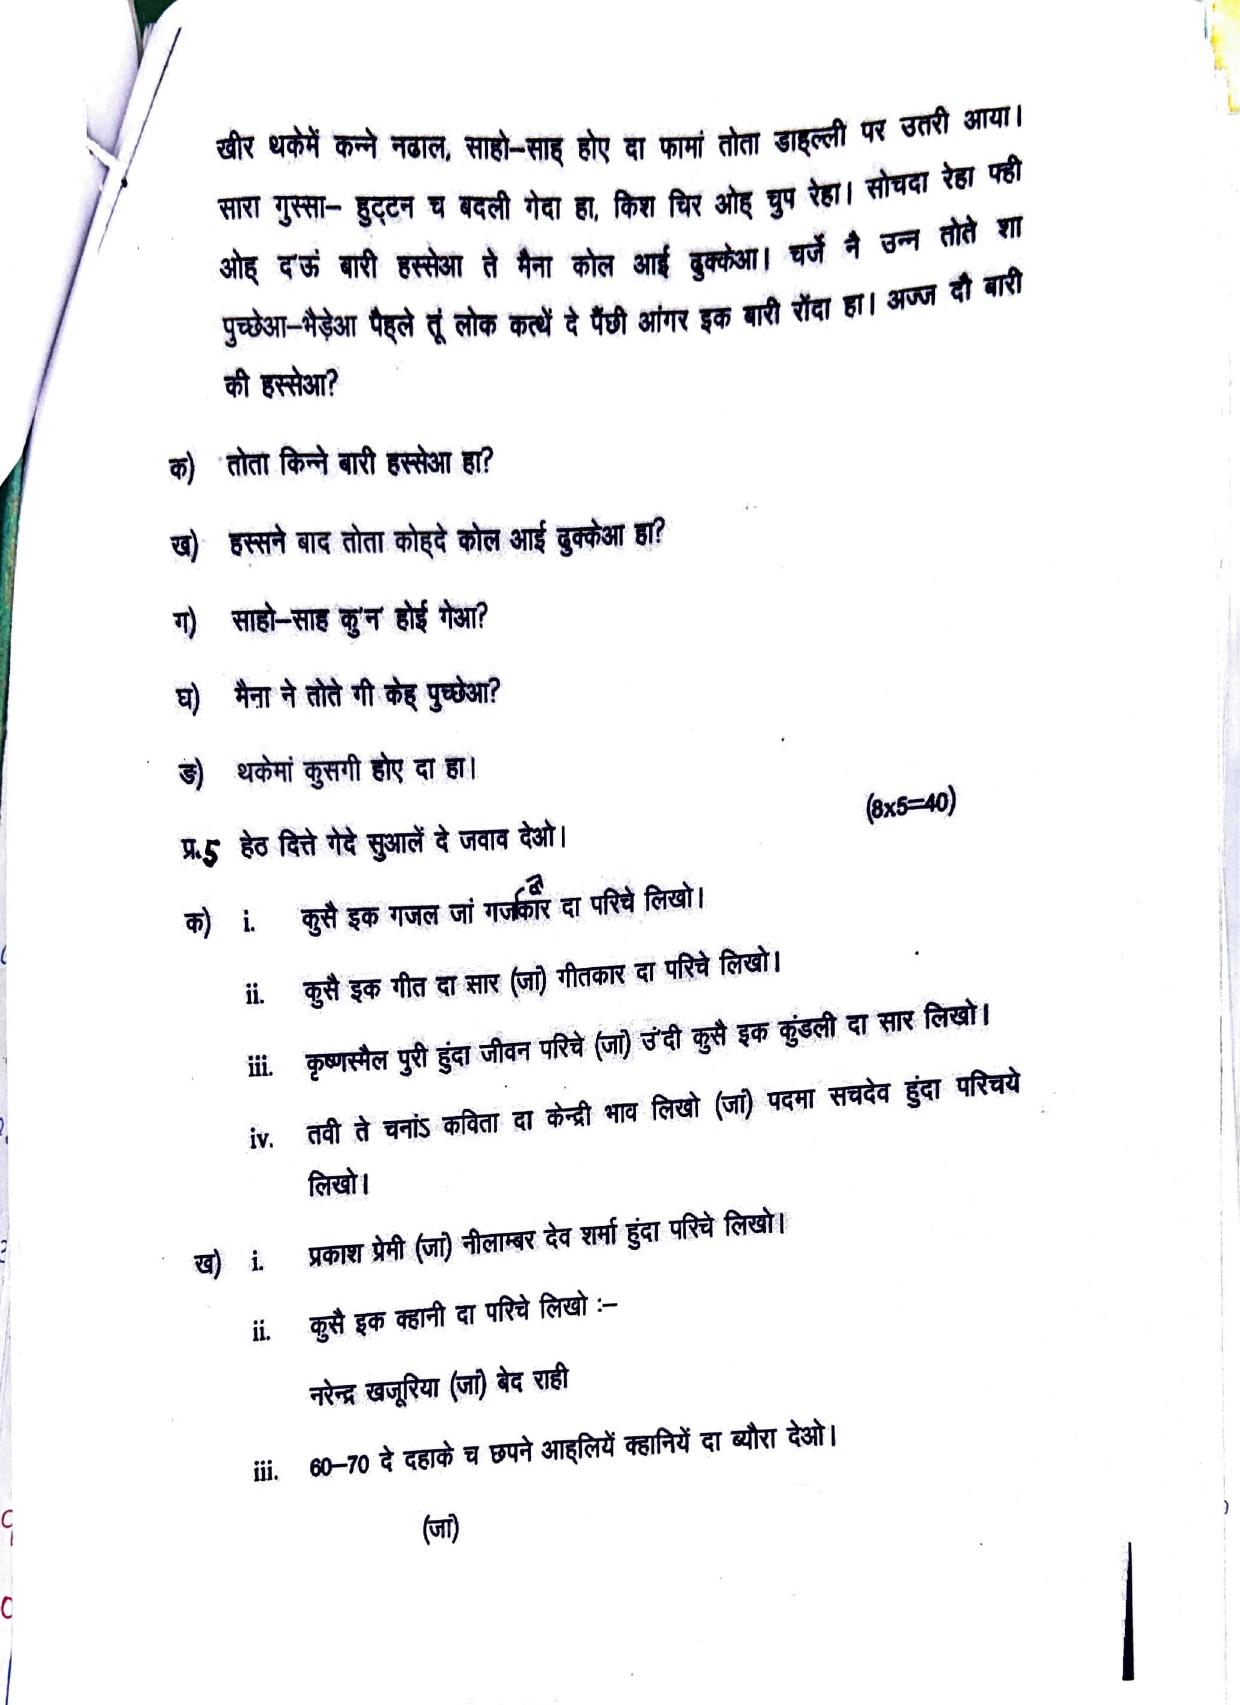 खीर थकेमें कन्ने नढाल, साहो–साह् होए दा फामां तोता डाह्ल्ली पर उतरी आया।
सारा गुस्सा– हुट्टन च बदली गेदा हा, किश चिर ओह् चुप रेहा। सोचदा रेहा फ्ही
ओह् द'ऊं बारी हस्सेआ ते मैना कोल आई ढुक्केआ। चर्जे नै उन्न तोते शा
पुच्छेआ–भैड़ेआ पैह्ले तूं लोक कत्थें दे पैंछी आंगर इक बारी रोंदा हा। अज्ज दौ बारी
की हस्सेआ?
क) तोता किन्ने बारी हस्सेआ हा?
ख) हस्सने बाद तोता कोह्दे कोल आई ढुक्केआ हा?
ग) साहो–साह कु'न होई गेआ?
घ) मैना ने तोते गी केह् पुच्छेआ?
ङ) थकेमां कुसगी होए दा हा।
(8x5=40)
प्र.5 हेठ दित्ते गेदे सुआलें दे जवाव देओ।
क) i. कुसै इक गजल जां दा परिचे लिखो।
ii. कुसै इक गीत दा सार (जां) गीतकार दा परिचे लिखो।
iii. कृष्णस्मैल पुरी हुंदा जीवन परिचे (जां) उं'दी कुसै इक कुंडली दा सार लिखो।
iv. तवी ते चनांऽ कविता दा केन्द्री भाव लिखो (जां) पदमा सचदेव हुंदा परिचये
लिखो।
ख) i. प्रकाश प्रेमी (जां) नीलाम्बर देव शर्मा हुंदा परिचे लिखो।
ii. कुसै इक क्हानी दा परिचे लिखो :–
नरेन्द्र खजूरिया (जां) बेद राही
iii. 60–70 दे दहाके च छपने आह्लियें क्हानियें दा ब्यौरा देओ।
(जां)